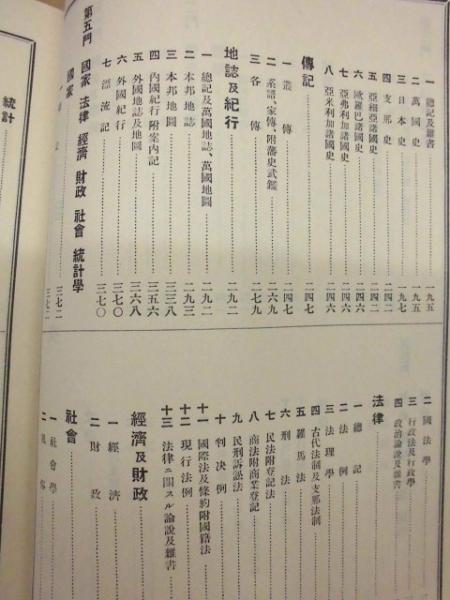 一 總記及雜書 一九五
二 萬國史 一九五
三 日本史 一九七
四 支那史 二四二
五 亞細亞諸國史 二四二
六 歐羅巴諸國史 二四六
七 亞弗利加諸國史 二四六
八 亞米利加諸國史 二四六
傳記 二四七
一 叢傳 二四七
二 系譜、家傳、附藩史武鑑 二六九
三 各傳 二七九
地誌及紀行 二九二
一 總記及萬國地誌、萬國地圖 二九二
二 本邦地誌 二九三
三 本邦地圖 三三八
四 內國紀行附案內記 三五六
五 外國地誌及地圖 三六八
六 外國紀行 三七〇
七 漂流記 三七〇
第五門 國家 法律 經濟 財政 社會 統計學
國家 三七二
三七二
統計
二 國法學
三 行政法及行政學
四 政治論說及雜書
法律
一 總記
二 法例
三 法理學
四 古代法制及支那法制
五 羅馬法
六 刑法
七 民法附登記法
八 商法附商業登記
九 民刑訴訟法
十 判決例
十一 國際法及條約附國籍法
十二 現行法例
十三 法律ニ關スル論說及雜書
經濟及財政
一 經濟
二 財政
社會
一 社會學
二